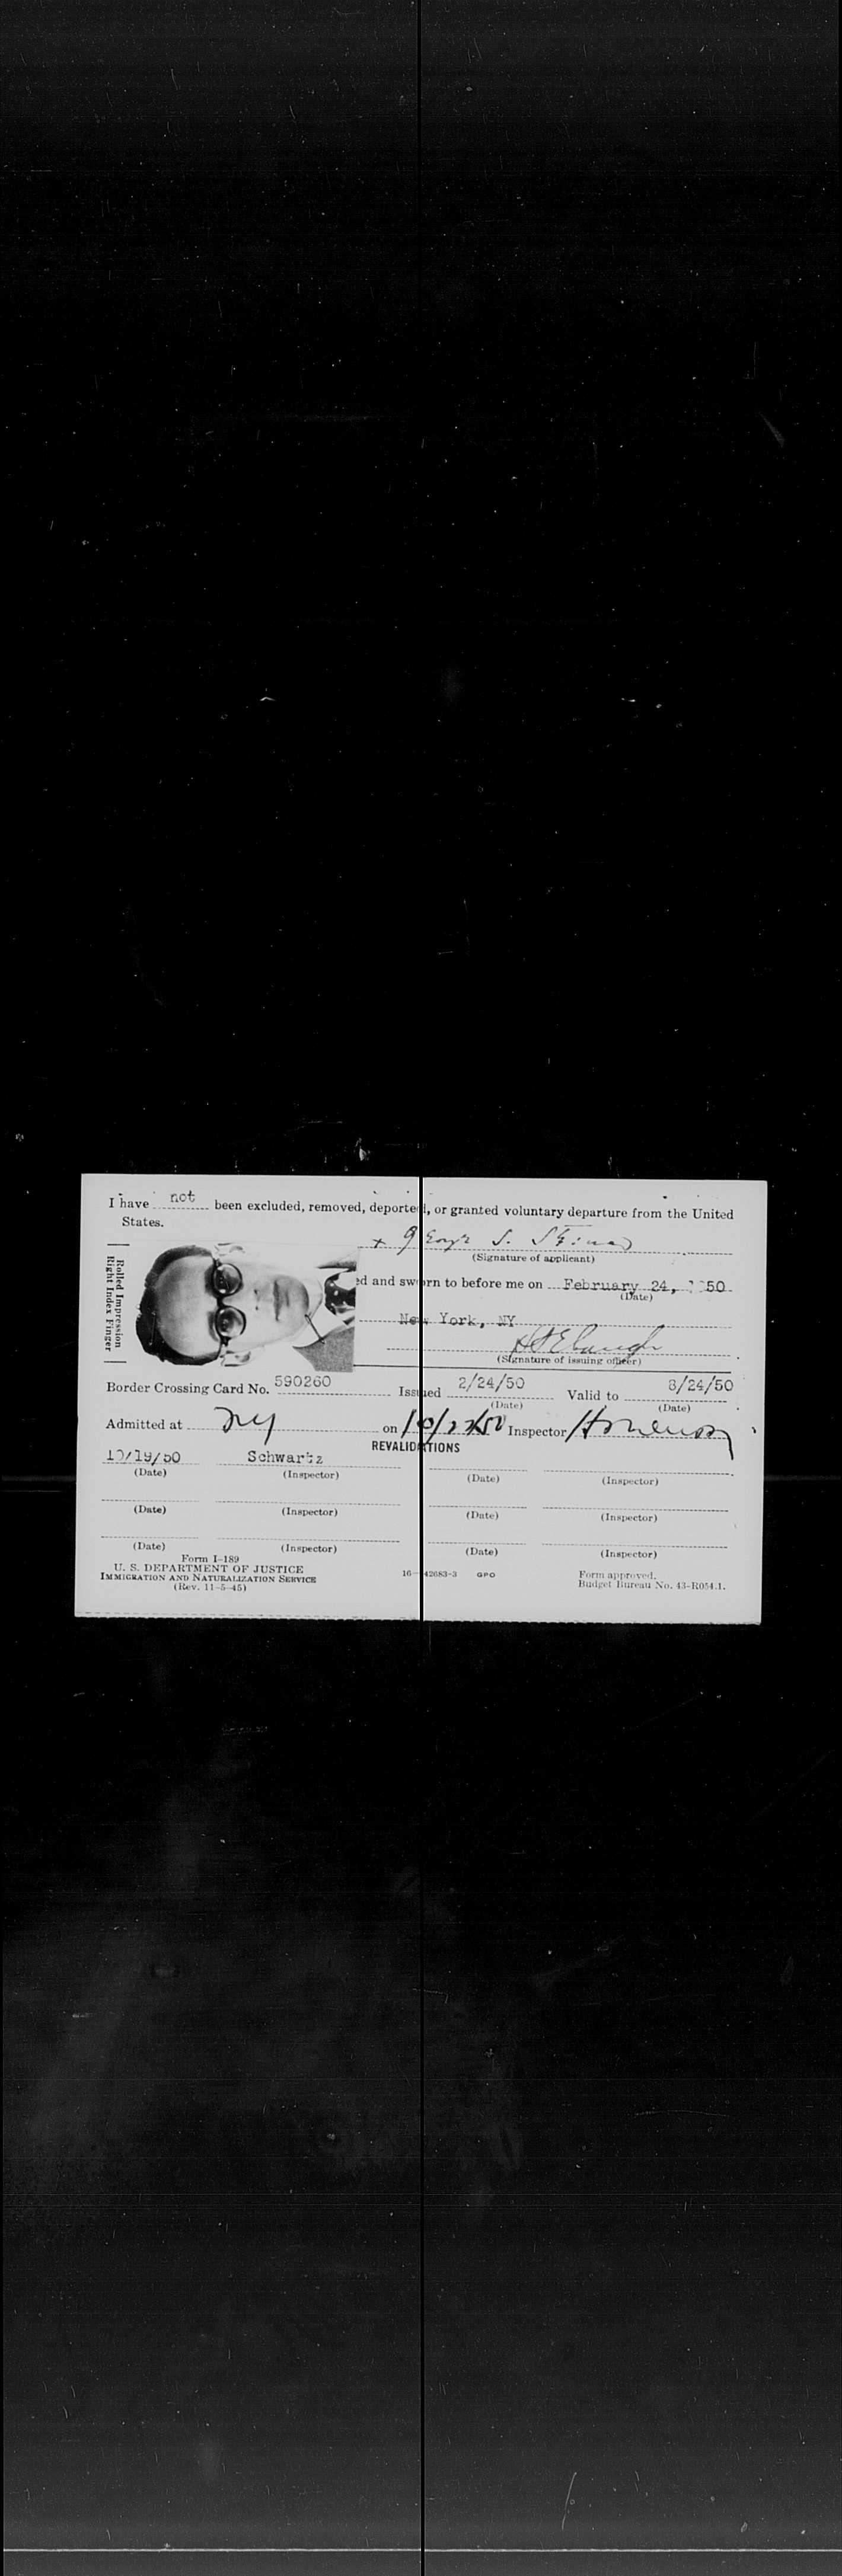 I have not been excluded, removed, deported, or granted voluntary departure from the United
States.
x George S.
(Signature of applicant)
Rolled Impression
Right Index Finger
ed and sworn to before me on February 24, 1950
(Date)
New York, NY
(Signature of issuing officer)
Border Crossing Card No. 590260 Issued 2/24/50 Valid to 8/24/50
(Date) (Date)
Admitted at NY on Inspector
REVALIDATIONS
10/19/50 Schwartz
(Date) (Inspector) (Date) (Inspector)
(Date) (Inspector) (Date) (Inspector)
(Date) (Inspector) (Date) (Inspector)
Form I-189
U. S. DEPARTMENT OF JUSTICE
IMMIGRATION AND NATURALIZATION SERVICE
(Rev. 11-5-45)
16—42683-3 GPO
Form approved.
Budget Bureau No. 43-R054.1.